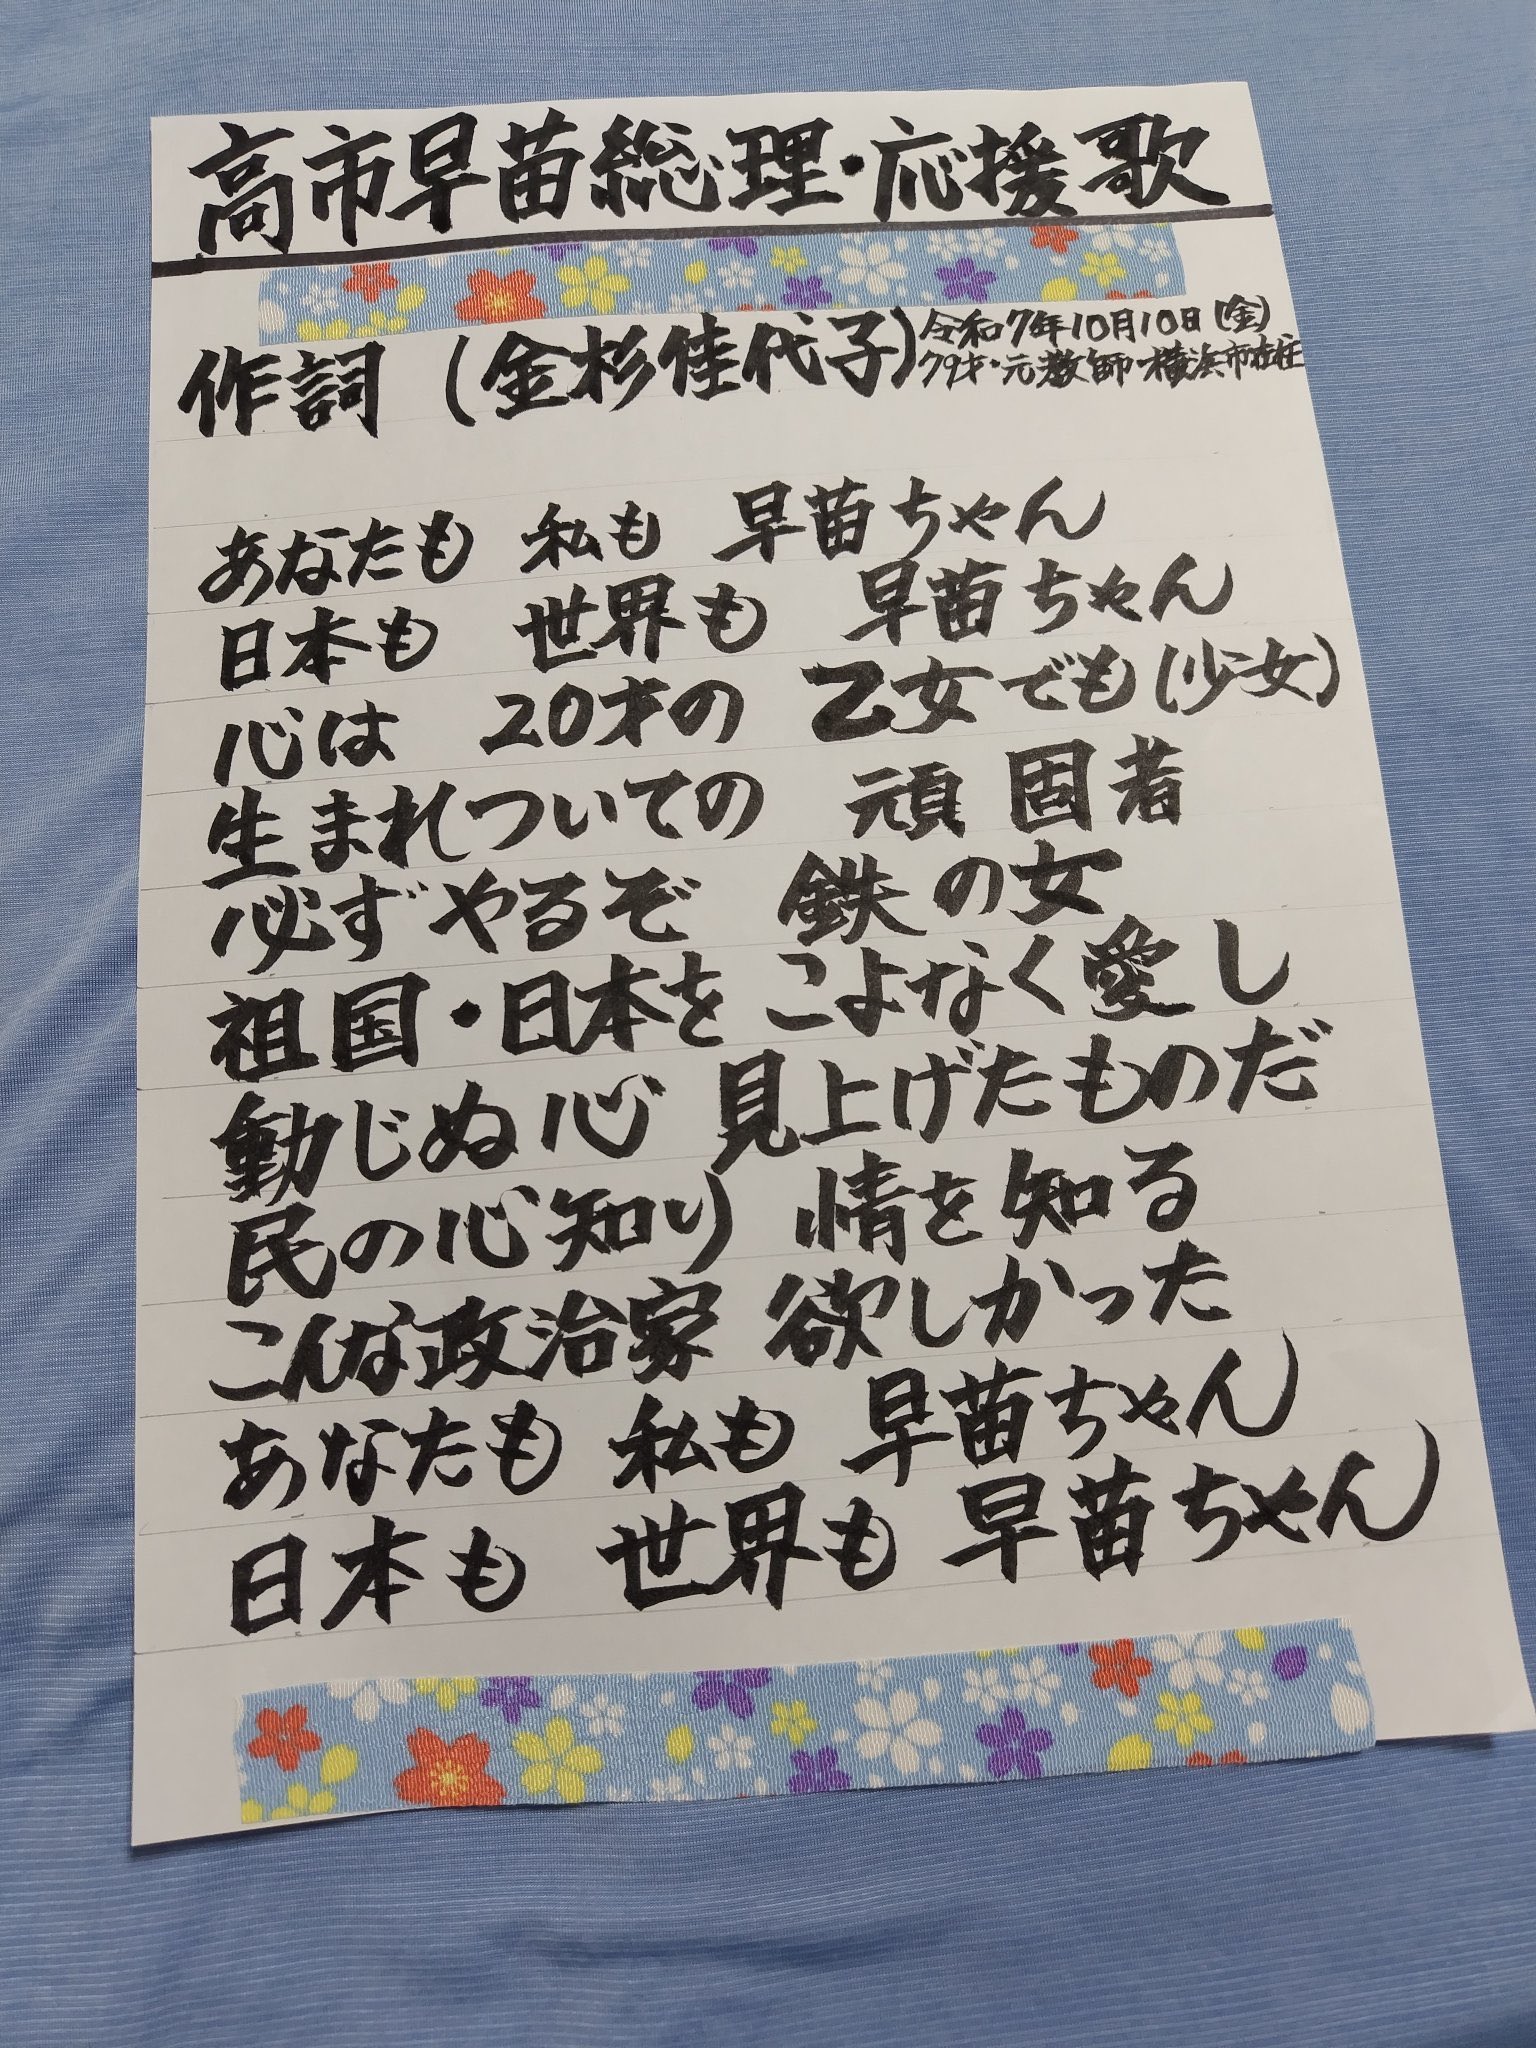 高市早苗総理・応援歌
作詞(金杉佳代子)
令和7年10月10日(金)
79才・元教師・横浜市在住
あなたも 私も 早苗ちゃん
日本も 世界も 早苗ちゃん
心は 20才の 乙女でも(少女)
生まれついての 頑固者
必ずやるぞ 鉄の女
祖国・日本を こよなく愛し
動じぬ心 見上げたものだ
民の心知り 情を知る
こんな政治家 欲しかった
あなたも 私も 早苗ちゃん
日本も 世界も 早苗ちゃん